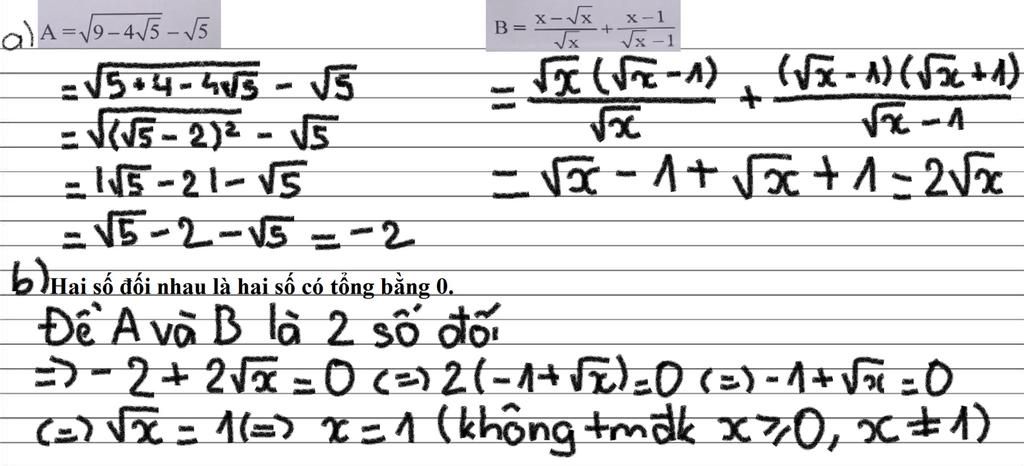 a) A = √(9 − 4√5) − √5
= √(5 + 4 − 4√5) − √5
= √((√5 − 2)²) − √5
= |√5 − 2| − √5
= √5 − 2 − √5 = −2
B = (x − √x)/√x + (x − 1)/(√x − 1)
= (√x (√x − 1))/√x + ((√x − 1)(√x + 1))/(√x − 1)
= √x − 1 + √x + 1 = 2√x
b) Hai số đối nhau là hai số có tổng bằng 0.
Để A và B là 2 số đối
=> −2 + 2√x = 0 (=) 2(−1 + √x) = 0 (=) −1 + √x = 0
(=) √x = 1 (=) x = 1 (không tmđk x ⩾ 0, x ≠ 1)